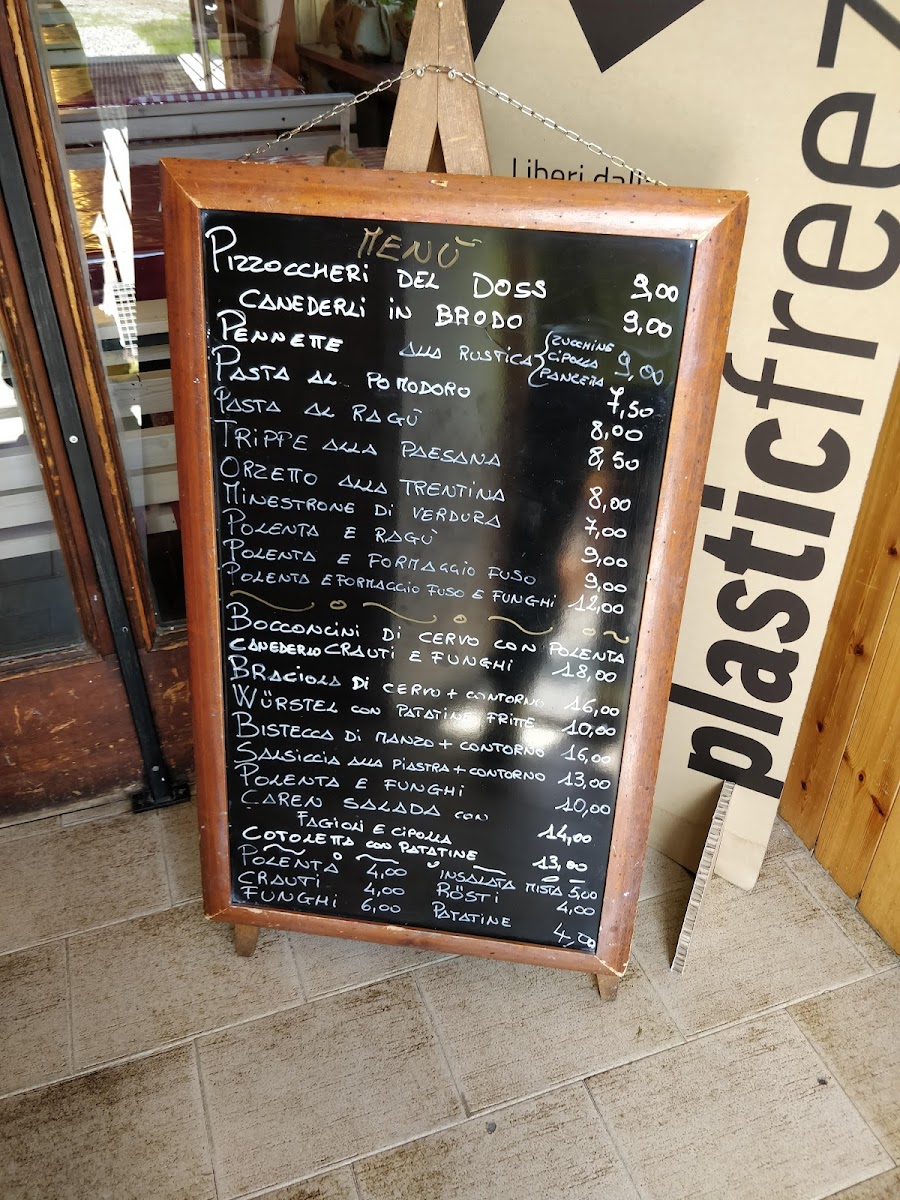 MENÙ
PIZZOCCHERI DEL DOSS 9,00
CANEDERLI IN BRODO 9,00
PENNETTE ALLA RUSTICA { ZUCCHINE CIPOLLA PANCETTA 9,00
PASTA AL POMODORO 7,50
PASTA AL RAGÙ 8,00
TRIPPE ALLA PAESANA 8,50
ORZETTO ALLA TRENTINA 8,00
MINESTRONE DI VERDURA 7,00
POLENTA E RAGÙ 9,00
POLENTA E FORMAGGIO FUSO 9,00
POLENTA E FORMAGGIO FUSO E FUNGHI 12,00
BOCCONCINI DI CERVO CON POLENTA
CANEDERLO CRAUTI E FUNGHI 18,00
BRACIOLA DI CERVO + CONTORNO 16,00
WÜRSTEL CON PATATINE FRITTE 10,00
BISTECCA DI MANZO + CONTORNO 16,00
SALSICCIA ALLA PIASTRA + CONTORNO 13,00
POLENTA E FUNGHI 10,00
CAREN SALADA CON
FAGIOLI E CIPOLLA 14,00
COTOLETTA CON PATATINE 13,00
POLENTA 4,00 INSALATA MISTA 5,00
CRAUTI 4,00 RÖSTI 4,00
FUNGHI 6,00 PATATINE 4,00
Liberi
plasticfreez